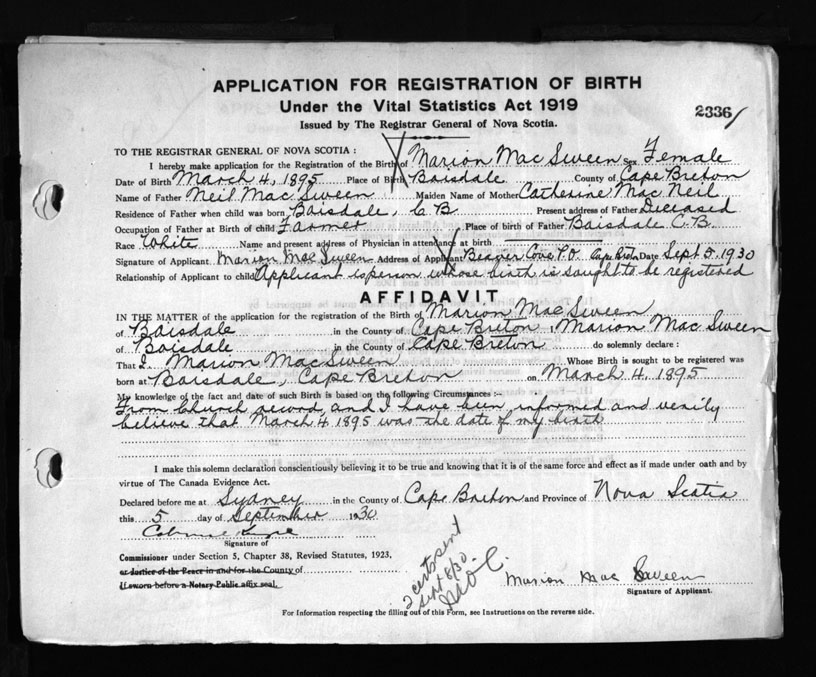 APPLICATION FOR REGISTRATION OF BIRTH
Under the Vital Statistics Act 1919
2336/
Issued by The Registrar General of Nova Scotia.
TO THE REGISTRAR GENERAL OF NOVA SCOTIA :
I hereby make application for the Registration of the Birth of Marion MacSween Sex Female
Date of Birth March 4, 1895 Place of Birth Boisdale County of Cape Breton
Name of Father Neil MacSween Maiden Name of Mother Catherine MacNeil
Residence of Father when child was born Boisdale, C B. Present address of Father Deceased
Occupation of Father at Birth of child Farmer Place of birth of Father Boisdale C.B.
Race White Name and present address of Physician in attendance at birth
Signature of Applicant Marion MacSween Address of Applicant Beaver Cove P.O. Cape Breton Date Sept 5, 1930
Relationship of Applicant to child Applicant is person whose birth is sought to be registered
AFFIDAVIT
IN THE MATTER of the application for the registration of the Birth of Marion MacSween
of Boisdale in the County of Cape Breton I, Marion MacSween
of Boisdale in the County of Cape Breton do solemnly declare :
That I, Marion MacSween Whose Birth is sought to be registered was
born at Boisdale, Cape Breton on March 4, 1895
My knowledge of the fact and date of such Birth is based on the following Circumstances :-
From Church record, and I have been informed and verily
believe that March 4 1895 was the date of my birth
I make this solemn declaration conscientiously believing it to be true and knowing that it is of the same force and effect as if made under oath and by
virtue of The Canada Evidence Act.
Declared before me at Sydney in the County of Cape Breton and Province of Nova Scotia
this 5 day of September 1930
Signature of
Commissioner under Section 5, Chapter 38, Revised Statutes, 1923.
or Justice of the Peace in and for the County of
If sworn before a Notary Public affix seal.
2 certs sent
Sept 8/30
Marion Mac Sween
Signature of Applicant.
For Information respecting the filling out of this Form, see Instructions on the reverse side.